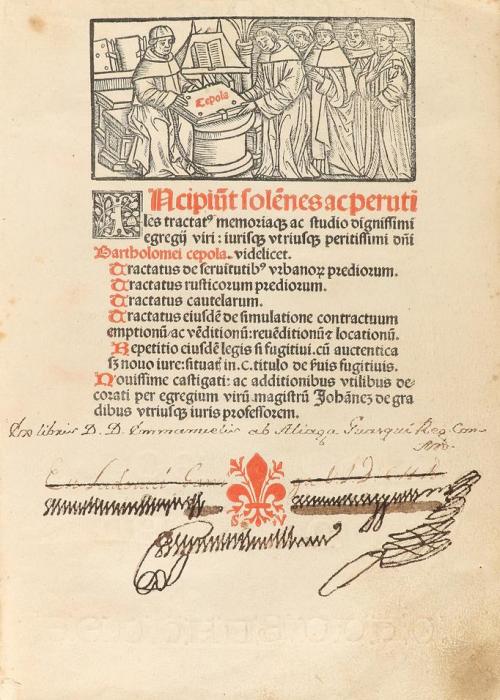 Cepola
INcipiũt solẽnes ac peruti
les tractatꝰ memoriaqꝫ ac studio dignissimi
egregij viri: iurisqꝫ vtriusqꝫ peritissimi dñi
Bartholomei cepola. videlicet.
Tractatus de seruitutibꝰ vrbanoꝝ prediorum.
Tractatus rusticorum prediorum.
Tractatus cautelarum.
Tractatus eiusdẽ de simulatione contractuum
emptionũ/ac vẽditionũ: reuẽditionũ⁊ locationũ.
Repetitio eiusdẽ legis si fugitiui. cũ auctentica
sꝫ nouo iure: situat̃ in. C. titulo de suis fugitiuis.
Nouissime castigati: ac additionibus vtilibus de-
corati per egregium virũ magistrũ Johãneʒ de gra
dibus vtriusqꝫ iuris professorem.
Ex libris D. D. Emmanuelis ab Aliaga